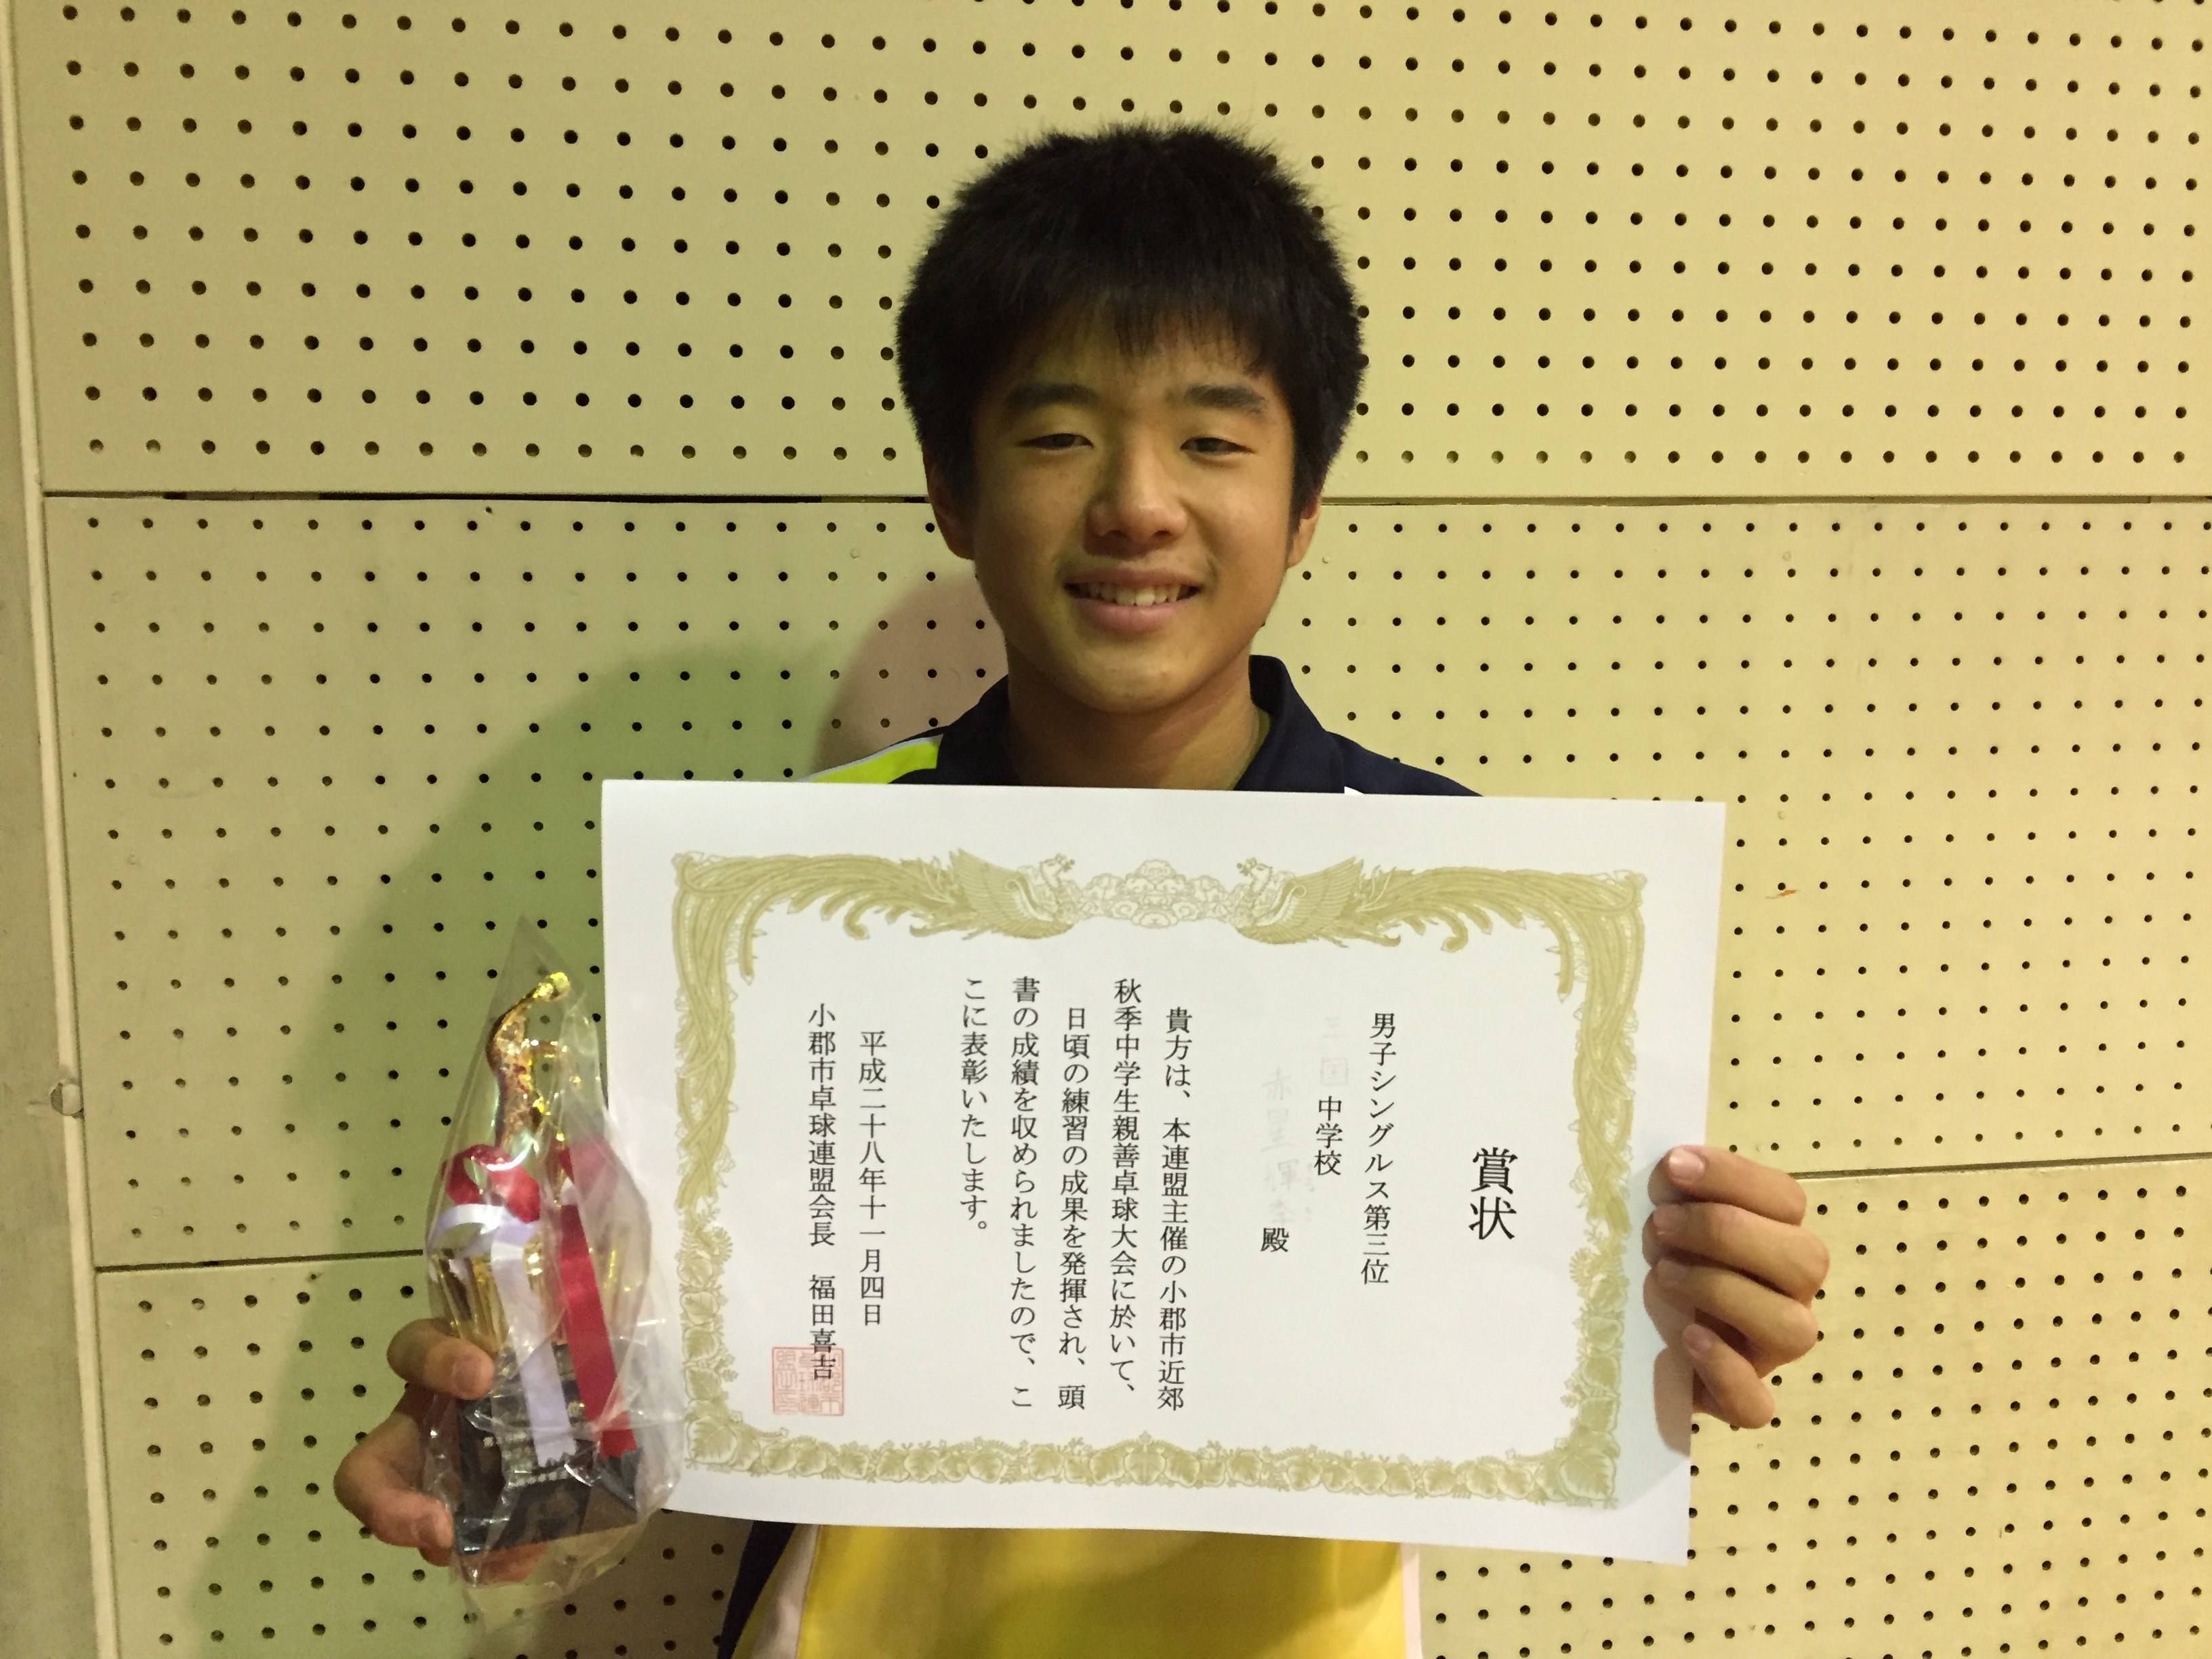 賞状
男子シングルス第三位
三国中学校
赤星輝 殿
貴方は、本連盟主催の小郡市近郊
秋季中学生親善卓球大会に於いて、
日頃の練習の成果を発揮され、頭
書の成績を収められましたので、こ
こに表彰いたします。
平成二十八年十一月四日
小郡市卓球連盟会長 福田喜吉